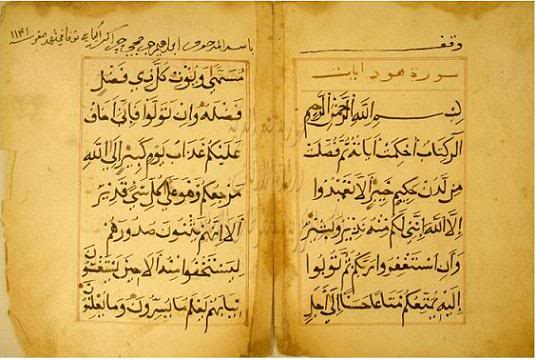 وقف
سورة هود
بِسْمِ اللهِ الرَّحْمٰنِ الرَّحِيمِ
الر كِتَابٌ اُحْكِمَتْ اٰيَاتُهُ ثُمَّ فُصِّلَتْ
مِنْ لَدُنْ حَكِيمٍ خَبِيرٍ اَلَّا تَعْبُدُوا
اِلَّا اللهَ اِنَّنِي لَكُمْ مِنْهُ نَذِيرٌ وَبَشِيرٌ
وَاَنِ اسْتَغْفِرُوا رَبَّكُمْ ثُمَّ تُوبُوا
اِلَيْهِ يُمَتِّعْكُمْ مَتَاعًا حَسَنًا اِلٰى اَجَلٍ
باسم المرحوم
١١٤١
مُسَمًّى وَيُؤْتِ كُلَّ ذِي فَضْلٍ
فَضْلَهُ وَاِنْ تَوَلَّوْا فَاِنِّي اَخَافُ
عَلَيْكُمْ عَذَابَ يَوْمٍ كَبِيرٍ اِلَى اللهِ
مَرْجِعُكُمْ وَهُوَ عَلٰى كُلِّ شَيْءٍ قَدِيرٌ
اَلَا اِنَّهُمْ يَثْنُونَ صُدُورَهُمْ
لِيَسْتَخْفُوا مِنْهُ اَلَا حِينَ يَسْتَغْشُونَ
ثِيَابَهُمْ يَعْلَمُ مَا يُسِرُّونَ وَمَا يُعْلِنُونَ